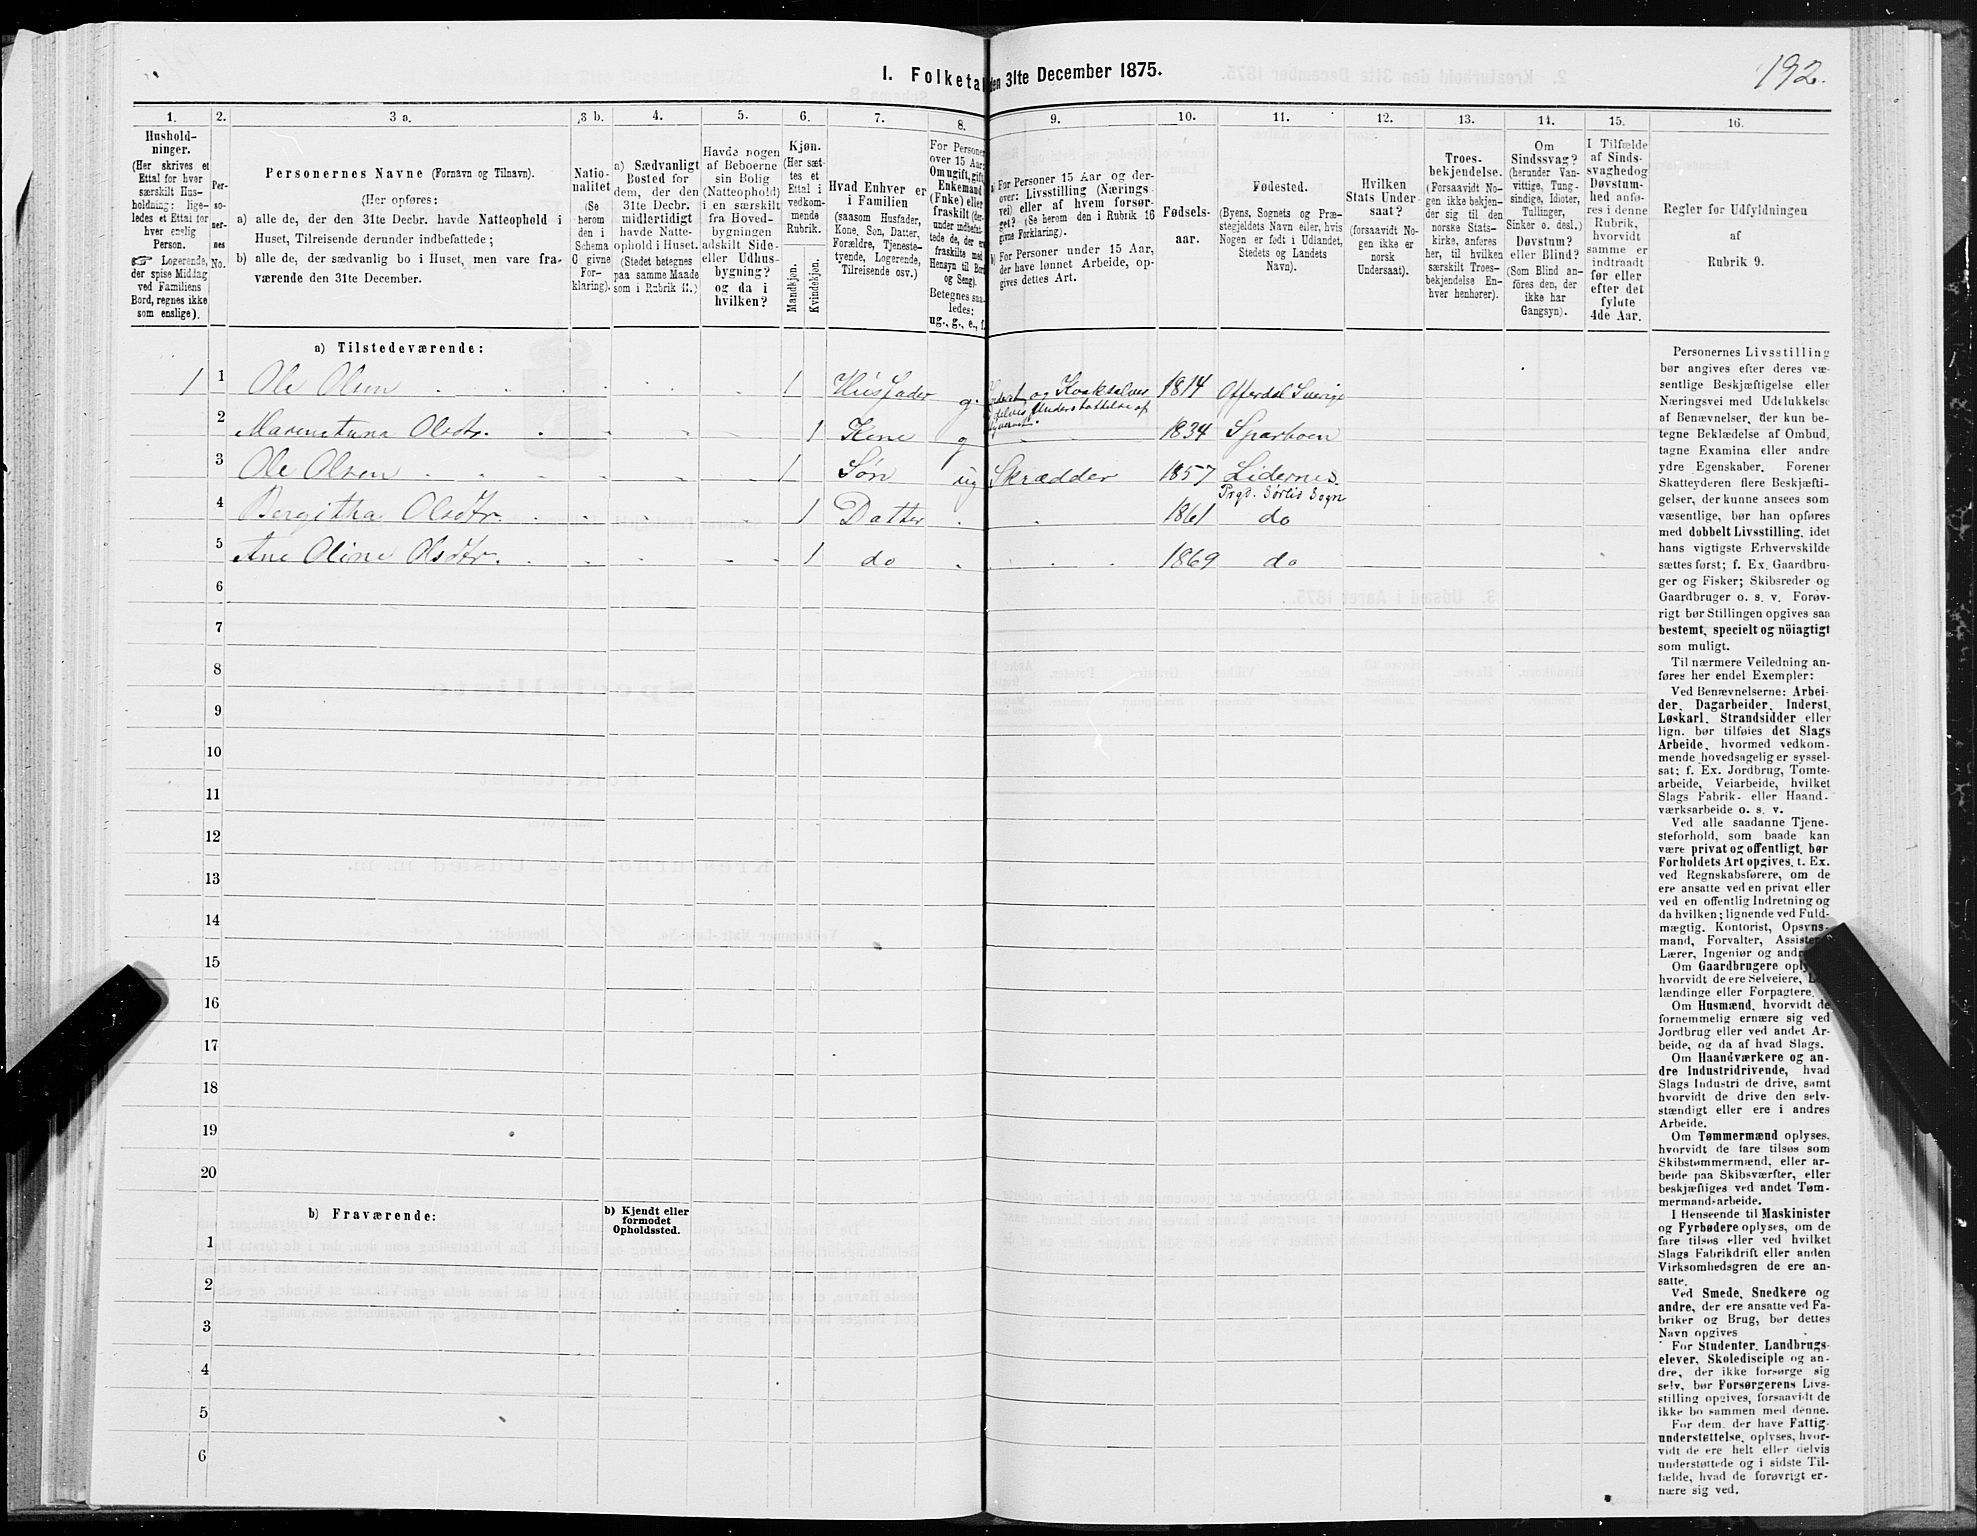 192.
I. Folketal den 31te December 1875.
1.
2.
3 a.
3 b.
4.
5.
6.
7.
8.
9.
10.
11.
12.
13.
14.
15.
16.
Hushold-
ninger.
(Her skrives et
Ettal for hver
særskilt Hus-
holdning; lige-
ledes et Ettal for
hver enslig
Person.
☞ Logerende,
der spise Middag
ved Familiens
Bord, regnes ikke
som enslige).
Per-
so-
ner-
nes
No.
Personernes Navne (Fornavn og Tilnavn).
(Her opføres:
a) alle de, der den 31te Decbr. havde Natteophold i
Huset, Tilreisende derunder indbefattede;
b) alle de, der sædvanlig bo i Huset, men vare fra-
værende den 31te December.
Natio-
nalitet
(Se
herom
den i
Schema
G givne
For-
klaring).
a) Sædvanligt
Bosted for
dem, der den
31te Decbr.
midlertidigt
havde Natte-
ophold i Huset.
(Stedet betegnes
paa samme Maade
som i Rubrik 11.)
Havde nogen
af Beboerne
sin Bolig
(Natteophold)
i en særskilt
fra Hoved-
bygningen
adskilt Side-
eller Udhus-
bygning?
og da i
hvilken?
Kjøn.
(Her sæt-
tes et
Ettal i
vedkom-
mende
Rubrik.
Mandkjøn.
Kvindekjøn.
Hvad Enhver er
i Familien
(saasom Husfader,
Kone, Søn, Datter,
Forældre, Tjeneste-
tyende, Logerende,
Tilreisende osv.)
For Personer
over 15 Aar:
Om ugift, gift,
Enkemand
(Enke) eller
fraskilt (der-
under indbefat-
tede de, der ere
fraskilte med
Hensyn til Bord
og Seng).
Betegnes saa-
ledes:
ug., g., e., f.
a) For Personer 15 Aar og der-
over: Livsstilling (Nærings-
vei) eller af hvem forsør-
get? (Se herom den i Rubrik 16
givne Forklaring).
b) For Personer under 15 Aar,
der have lønnet Arbeide, op-
gives dettes Art.
Fødsels-
aar.
Fødested.
(Byens, Sognets og Præ-
stegjeldets Navn eller, hvis
Nogen er født i Udlandet,
Stedets og Landets
Navn).
Hvilken
Stats Under-
saat?
(forsaavidt No-
gen ikke er
norsk
Undersaat).
Troes-
bekjendelse.
(Forsaavidt No-
gen ikke bekjen-
der sig til den
norske Stats-
kirke, anføres
her, til hvilken
særskilt Troes-
bekjendelse En-
hver henhører).
Om
Sindssvag?
(herunder Van-
vittige, Tung-
sindige, Idioter,
Tullinger,
Sinker o. desl.)
Døvstum?
eller Blind?
(Som Blind an-
føres den, der
ikke har
Gangsyn).
I Tilfælde
af Sinds-
svaghedog
Døvstum-
hed anfø-
res i denne
Rubrik,
hvorvidt
samme er
indtraadt
før eller
efter det
fylute
4de Aar.
Regler for Udfyldningen
af
Rubrik 9.
a) Tilstedeværende:
1 1 Ole Olsen 1 Husfader g. og Kvaksalver 1814 Offerdal Sverige
delvis Understøttelse af
2 Olsdtr. 1 Kone g 1834 Sparboen
3 Ole Olsen 1 Søn ug Skrædder 1857 Lidernes
Prgd. Sørlid Sogn
4 Bergitha Olsdtr. 1 Datter 1861 do
5 Ane Oline Olsdtr. 1 do 1869 do
6
7
8
9
10
11
12
13
14
15
16
17
18
19
20
b) Fraværende:
b) Kjendt eller
formodet
Opholdssted.
1
2
3
4
5
6
Personernes Livsstilling
bør angives efter deres væ-
sentlige Beskjæftigelse eller
Næringsvei med Udelukkelse
af Benævnelser, der kun be-
tegne Beklædelse af Ombud,
tagne Examina eller andre
ydre Egenskaber. Forener
Skatteyderen flere Beskjæfti-
gelser, der kunne ansees som
væsentlige, bør han opføres
med dobbelt Livsstilling, idet
hans vigtigste Erhvervskilde
sættes først; f. Ex. Gaardbru-
ger og Fisker; Skibsreder og
Gaardbruger o. s. v. Forøv-
rigt bør Stillingen opgives saa
bestemt, specielt og nöiagtigt
som muligt.
Til nærmere Veiledning an-
føres her endel Exempler:
Ved Benævnelserne: Arbei-
der, Dagarbeider, Inderst,
Løskarl, Strandsidder eller
lign. bør tilføies det Slags
Arbeide, hvormed vedkom-
mende hovedsagelig er syssel-
sat; f. Ex. Jordbrug, Tomte-
arbeide, Veiarbeide, hvilket
Slags Fabrik- eller Haand-
værksarbeide o. s. v.
Ved alle saadanne Tjene-
steforhold, som baade kan
være privat og offentligt, bør
Forholdets Art opgives, f. Ex.
ved Regnskabsførere, om de
ere ansatte ved en privat eller
ved en offentlig Indretning og
da hvilken; lignende ved Fuld-
mægtig, Kontorist, Opsyns-
mand, Forvalter,
Lærer, Ingeniør og
Om Gaardbrugere
hvorvidt de ere Selveiere,
lændinge eller Forpagtere.
Om Husmænd, hvorvidt de
fornemmelig ernære sig ved
Jordbrug eller ved andet Ar-
beide, og da af hvad Slags.
Om Haandværkere og an-
dre Industridrivende, hvad
Slags Industri de drive, samt
hvorvidt de drive den selv-
stændigt eller ere i andres
Arbeide.
Om Tømmermænd oplyses,
hvorvidt de fare tilsøs som
Skibstømmermænd, eller ar-
beide paa Skibsværfter, eller
beskjæftiges ved andet Tøm-
mermandsarbeide.
I Henseende til Maskinister
og Fyrbødere oplyses, om de
fare tilsøs eller ved hvilket
Slags Fabrikdrift eller anden
Virksomhedsgren de ere an-
satte.
Ved Smede, Snedkere og
andre, der ere ansatte ved Fa-
briker og Brug, bør dettes
Navn opgives
For Studenter, Landbrugs-
elever, Skoledisciple og an-
dre, der ikke forsørge sig
selv, bør Forsørgerens Livs-
stilling opgives, forsaavidt de
ikke bo sammen med denne.
For dem, der have Fattig-
understøttelse, oplyses, hvor-
vidt de ere helt eller delvis
understøttede og i sidste Til-
fælde, hvad de forøvrigt er-
nære sig ved.